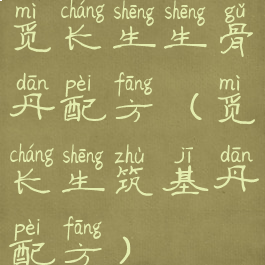 mì cháng shēng shēng gǔ
觅长生生骨
dān pèi fāng mì
丹配方(觅
cháng shēng zhù jī dān
长生筑基丹
pèi fāng
配方)